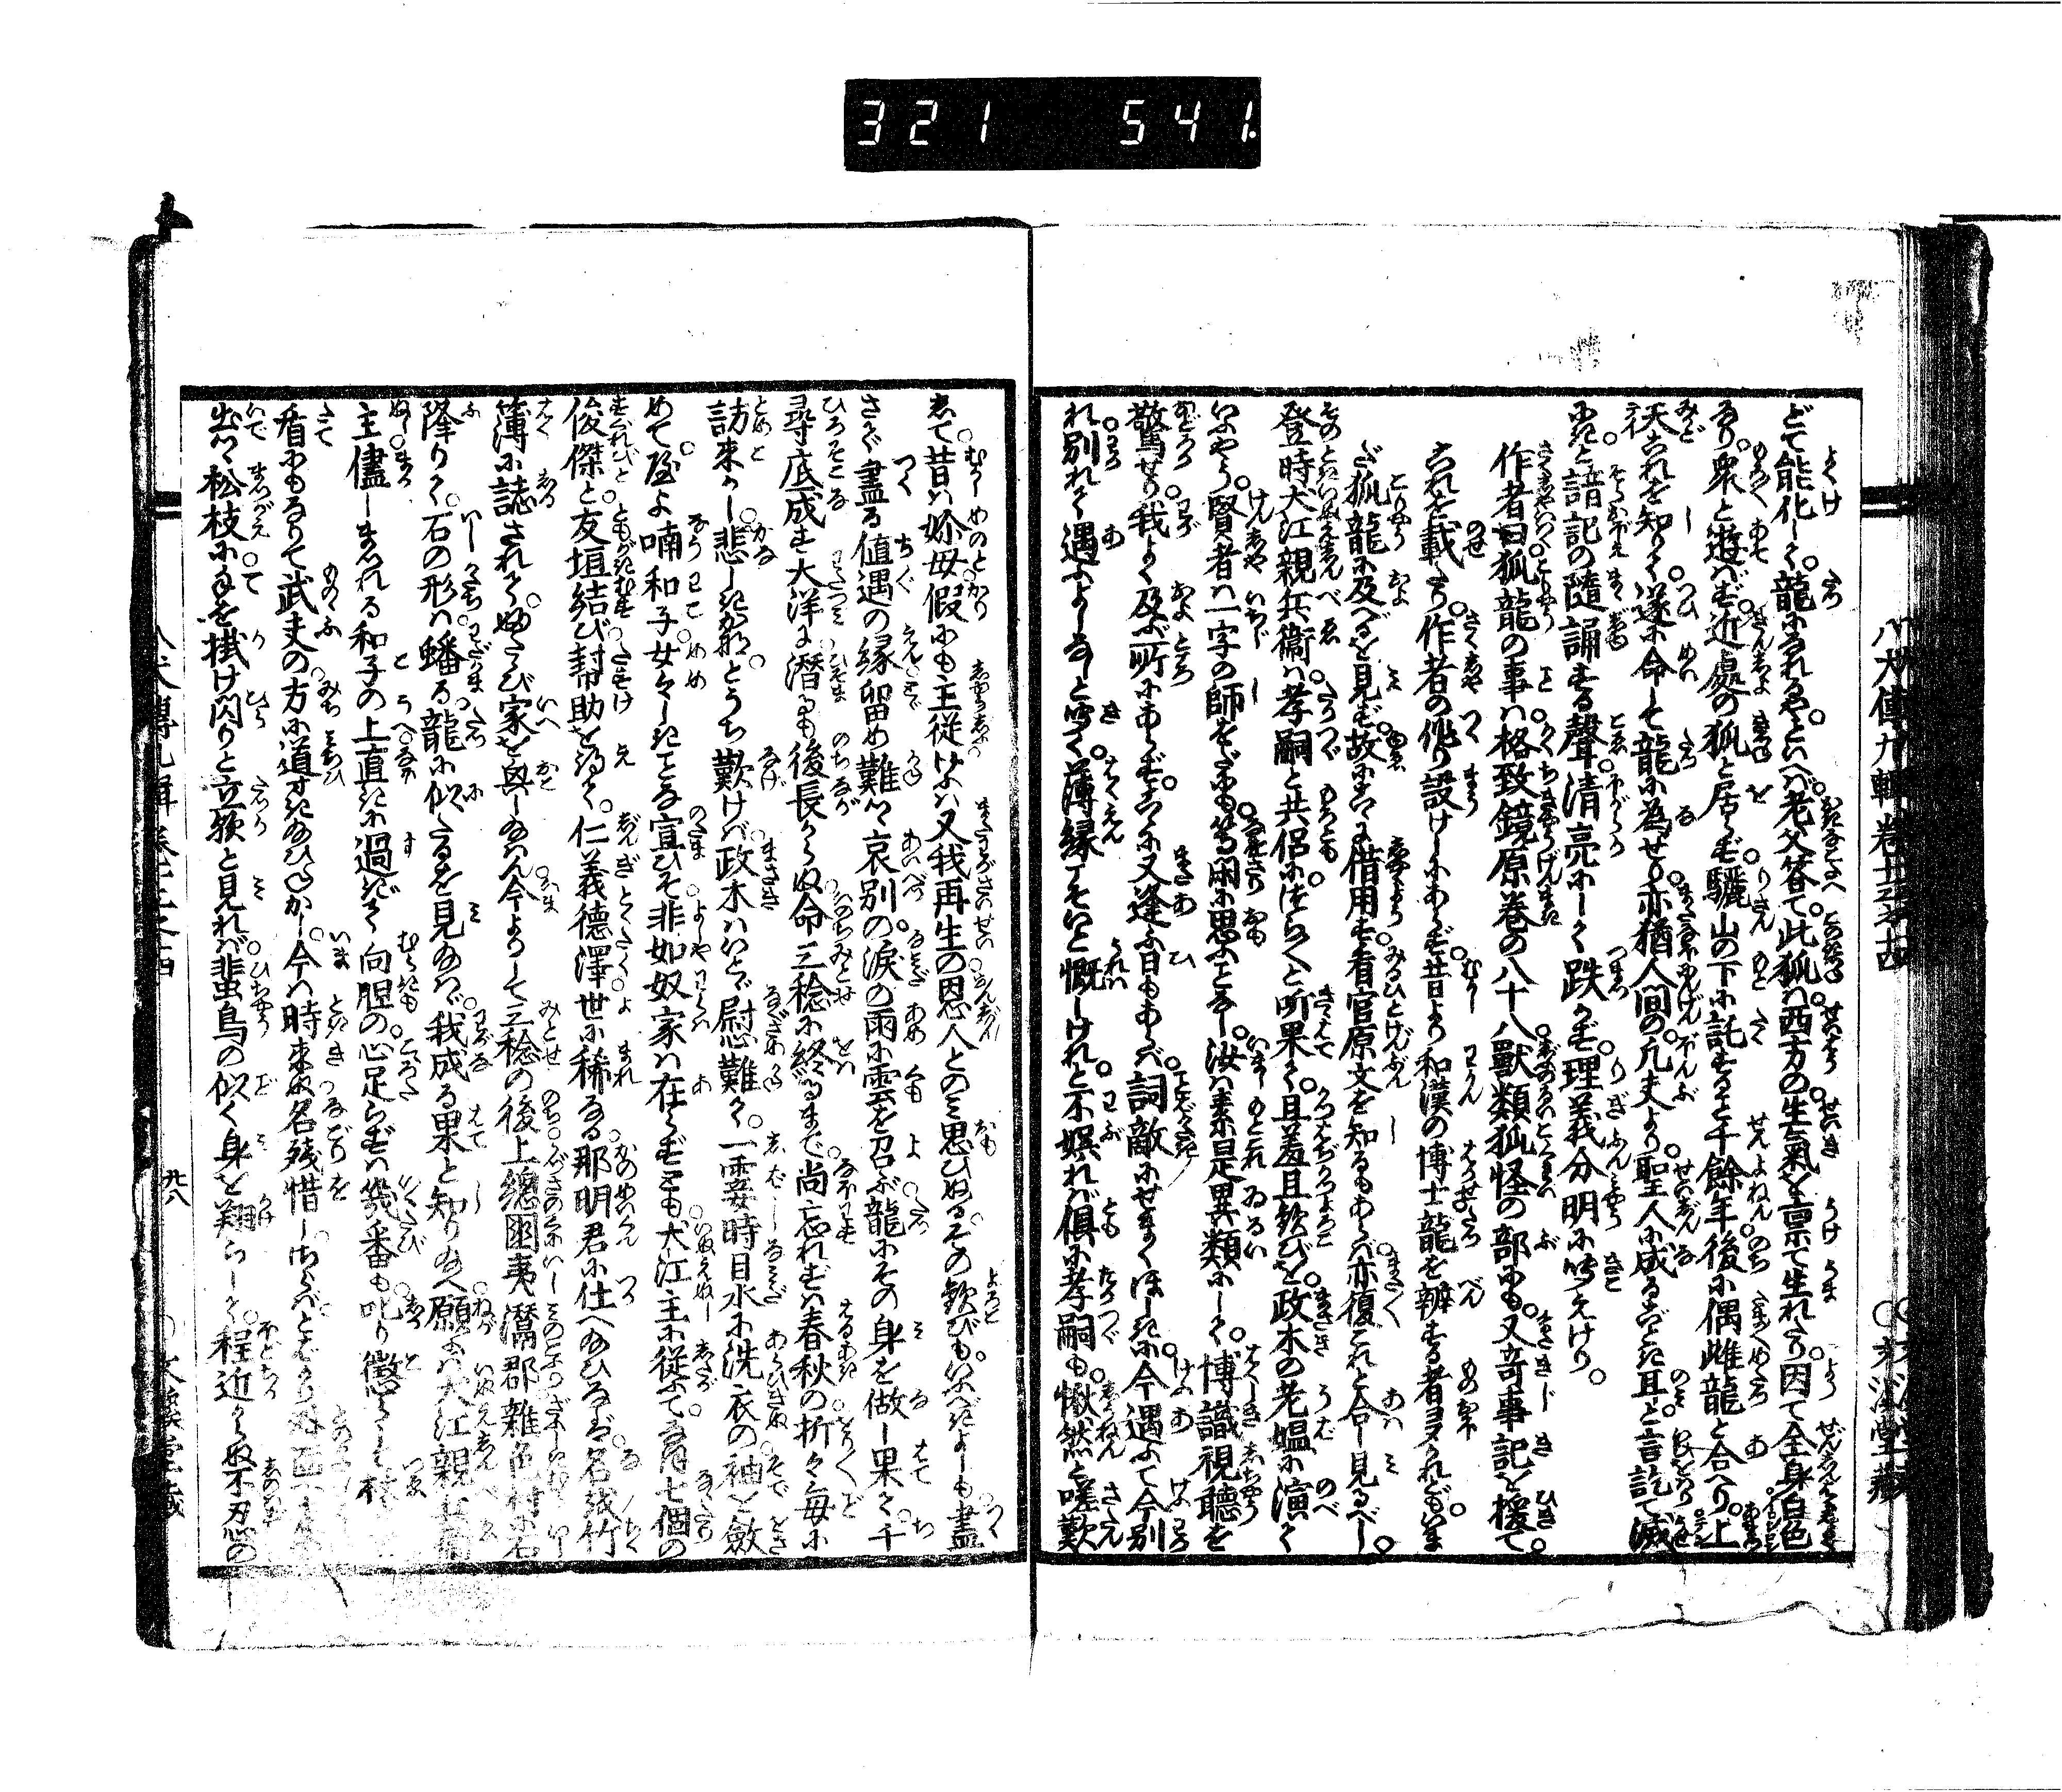 321 541
八犬傳九輯卷十三之十四
○文溪堂藏
どて能化して。龍になれるやといへば。老父答て。此狐は。西方の生氣を禀て生れたり。因て全身白色
なり。衆と遊ばず。近處の狐と居らず。驪山の下に託すること千餘年。後に偶雌龍と合へり。上
天これを知りて。遂に命して龍に為せり。亦猶人間の凡夫より。聖人に成るごときのみと。言訖て滅
にきと。諳記の隨誦する聲。清亮にして跌かず。理義分明に聞えけり。
作者曰狐龍の事は格致鏡原卷の八十八獸類狐怪の部にも。又竒事記を援て。
これを載たり。作者の作り設けしにあらず。昔より和漢の博士龍を辨する者多かれども。いま
だ狐龍に及べるを見ず。故にこゝに借用す。看官原文を知るもあらば。亦復これと合し見るべし。
登時犬江親兵衞は。孝嗣と共侶に。つら〳〵と听果て。且羞且歡びを。政木の老媼に演て
いふやう。賢者は一字の師をだにも。等閑に思ふことなし。汝は素是異類にして。博識視聽を
驚せり。我よく及ぶ所にあらず。こゝに又逢ふ日もあらば。詞敵にせまくほしきに。今遇ふて今別
れ。別れて遇ふよしなしと聞く。薄縁こそいと慨しけれと。不娯れば倶に孝嗣も。愀然と嗟歎
して。昔は妳母假にも主從。けふは又我再生の恩人との三思ひぬる。その歡びも。いふべきよしも盡
さで盡る値遇の縁。留め難つゝ哀別の。涙の雨に雲を召ぶ。龍にその身を做し果て。千
尋底成す大洋に。潛るも後長からぬ。命三稔に終るまで。尚忘れずは春秋の。折々毎に
訪來かし。悲しきかな。とうち歎けば。政木はいとゞ慰難て。一霎時目水に洗衣の。袖を斂
めて。嗟よ喃和子。女々しきことな宣ひそ。非如奴家は在らずとも。犬江主に從ふて。七個の
俊傑と友垣結び。幇助を得て。仁義徳澤世に稀なる。那明君に仕へ給ひなば。名は竹
簿に誌されて。ふたゝび家を興し給はん。今よりして三稔の後。上總國夷灊郡雜色村に。石
降りて。石の形は蟠る。龍に似たるを見給はゞ。我成る果と知り給へ。願ふは犬江親兵衞
主。儘しまされる和子の上。直きに過ぎて向胆の。心足らずは幾番も。叱り懲らして
看にもなりて武夫の。方に道びき給ひねかし。今は時來ぬ名殘惜し。さらばとばかり
出つゝ。松枝に手を掛け。閃りと立騎と見れば。蜚鳥の似く身を翔らして。程近からぬ不忍の
八犬傳九輯卷十三之十四
廿八
○文溪堂藏